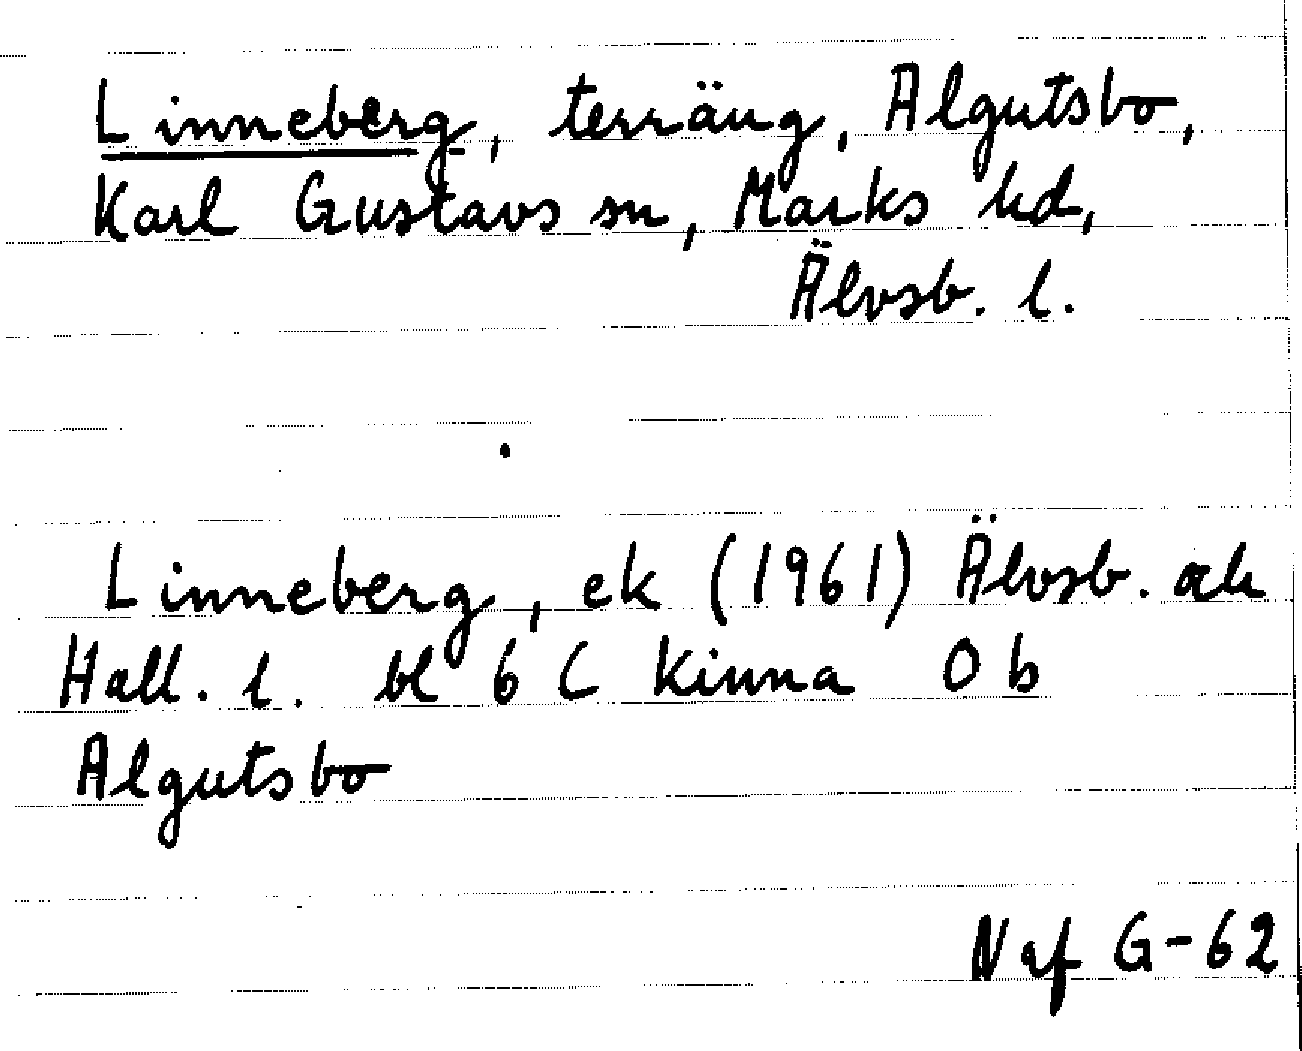 Linneberg, terräng, Algutsbo,
Karl Gustavs sn, Marks hd,
Älvsb. l.
Linneberg, ek (1961) Älvsb. ah
Hall. l. bl 6 C Kinna 0 b
Algutsbo
Naf G-62